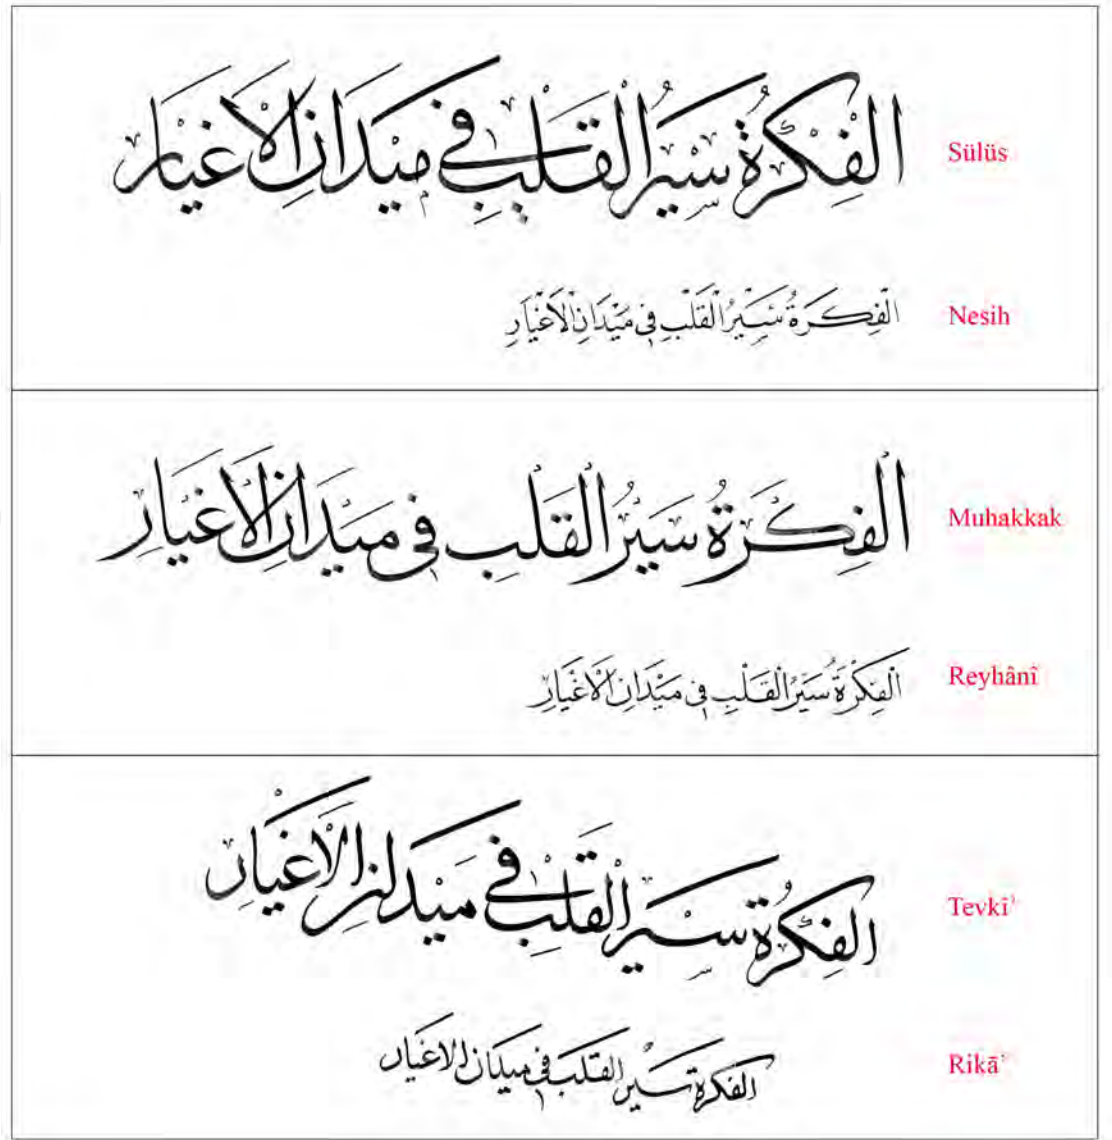 Sülüs
اَلْفِكْرَةُ سَيْرُ الْقَلْبِ فِي مَيْدَانِ الْاَغْيَارِ
Nesih
اَلْفِكْرَةُ سَيْرُ الْقَلْبِ فِي مَيْدَانِ الْاَغْيَارِ
Muhakkak
اَلْفِكْرَةُ سَيْرُ الْقَلْبِ فِي مَيْدَانِ الْاَغْيَارِ
Reyhânî
اَلْفِكْرَةُ سَيْرُ الْقَلْبِ فِي مَيْدَانِ الْاَغْيَارِ
Tevkî’
الْفِكْرَةُ سَيْرُ الْقَلْبِ فِي مَيْدَانِ الْاَغْيَارِ
Rikā’
الفكرة سير القلب في ميدان الاغيار